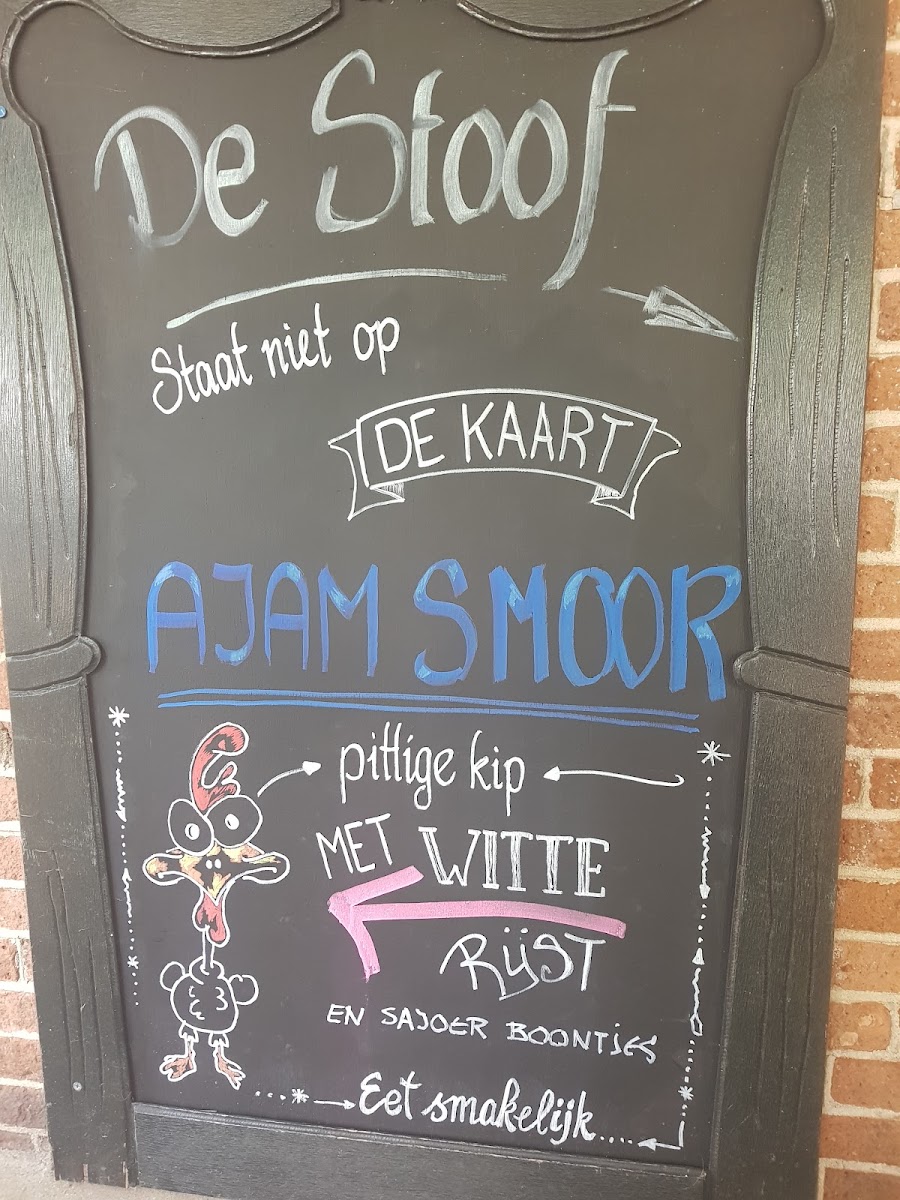 De Stoof
Staat niet op
DE KAART
AJAM SMOOR
pittige kip
MET WITTE
RijST
EN SAJOER BOONTJES
Eet smakelijk....